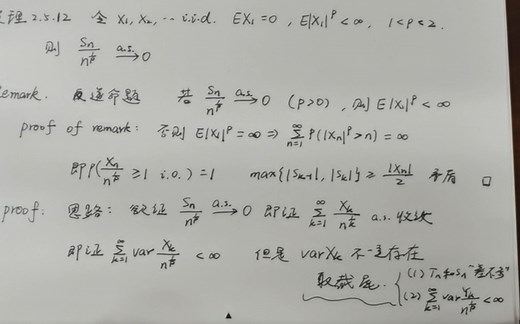 定理 2.5.12 令 X₁, X₂, … i.i.d. EX₁ = 0, E|X₁|^p < ∞, 1<p<2.
则 Sn/n^{1/p} a.s.→ 0
Remark. 反道命题 若 Sn/n^{1/p} a.s.→ 0 (p>0), 则 E|X₁|^p < ∞
proof of remark: 否则 E|X₁|^p = ∞ ⇒ ∑_{n=1}^{∞} P(|Xn|^p > n) = ∞
即 P(Xn/n^{1/p} ≥ 1 i.o.) = 1 max{|S_{k-1}|, |S_k|} ≥ |Xn|/2 矛盾 □
proof: 思路: 欲证 Sn/n^{1/p} a.s.→ 0 即证 ∑_{k=1}^{∞} X_k/n^{1/p} a.s. 收敛
即证 ∑_{k=1}^{∞} var X_k/n^{1/p} < ∞ 但是 var X_k 不一定存在
取截尾. { (1) Tn和Sn "差不多"
(2) ∑_{k=1}^{∞} var Y_k/n^{1/p} < ∞